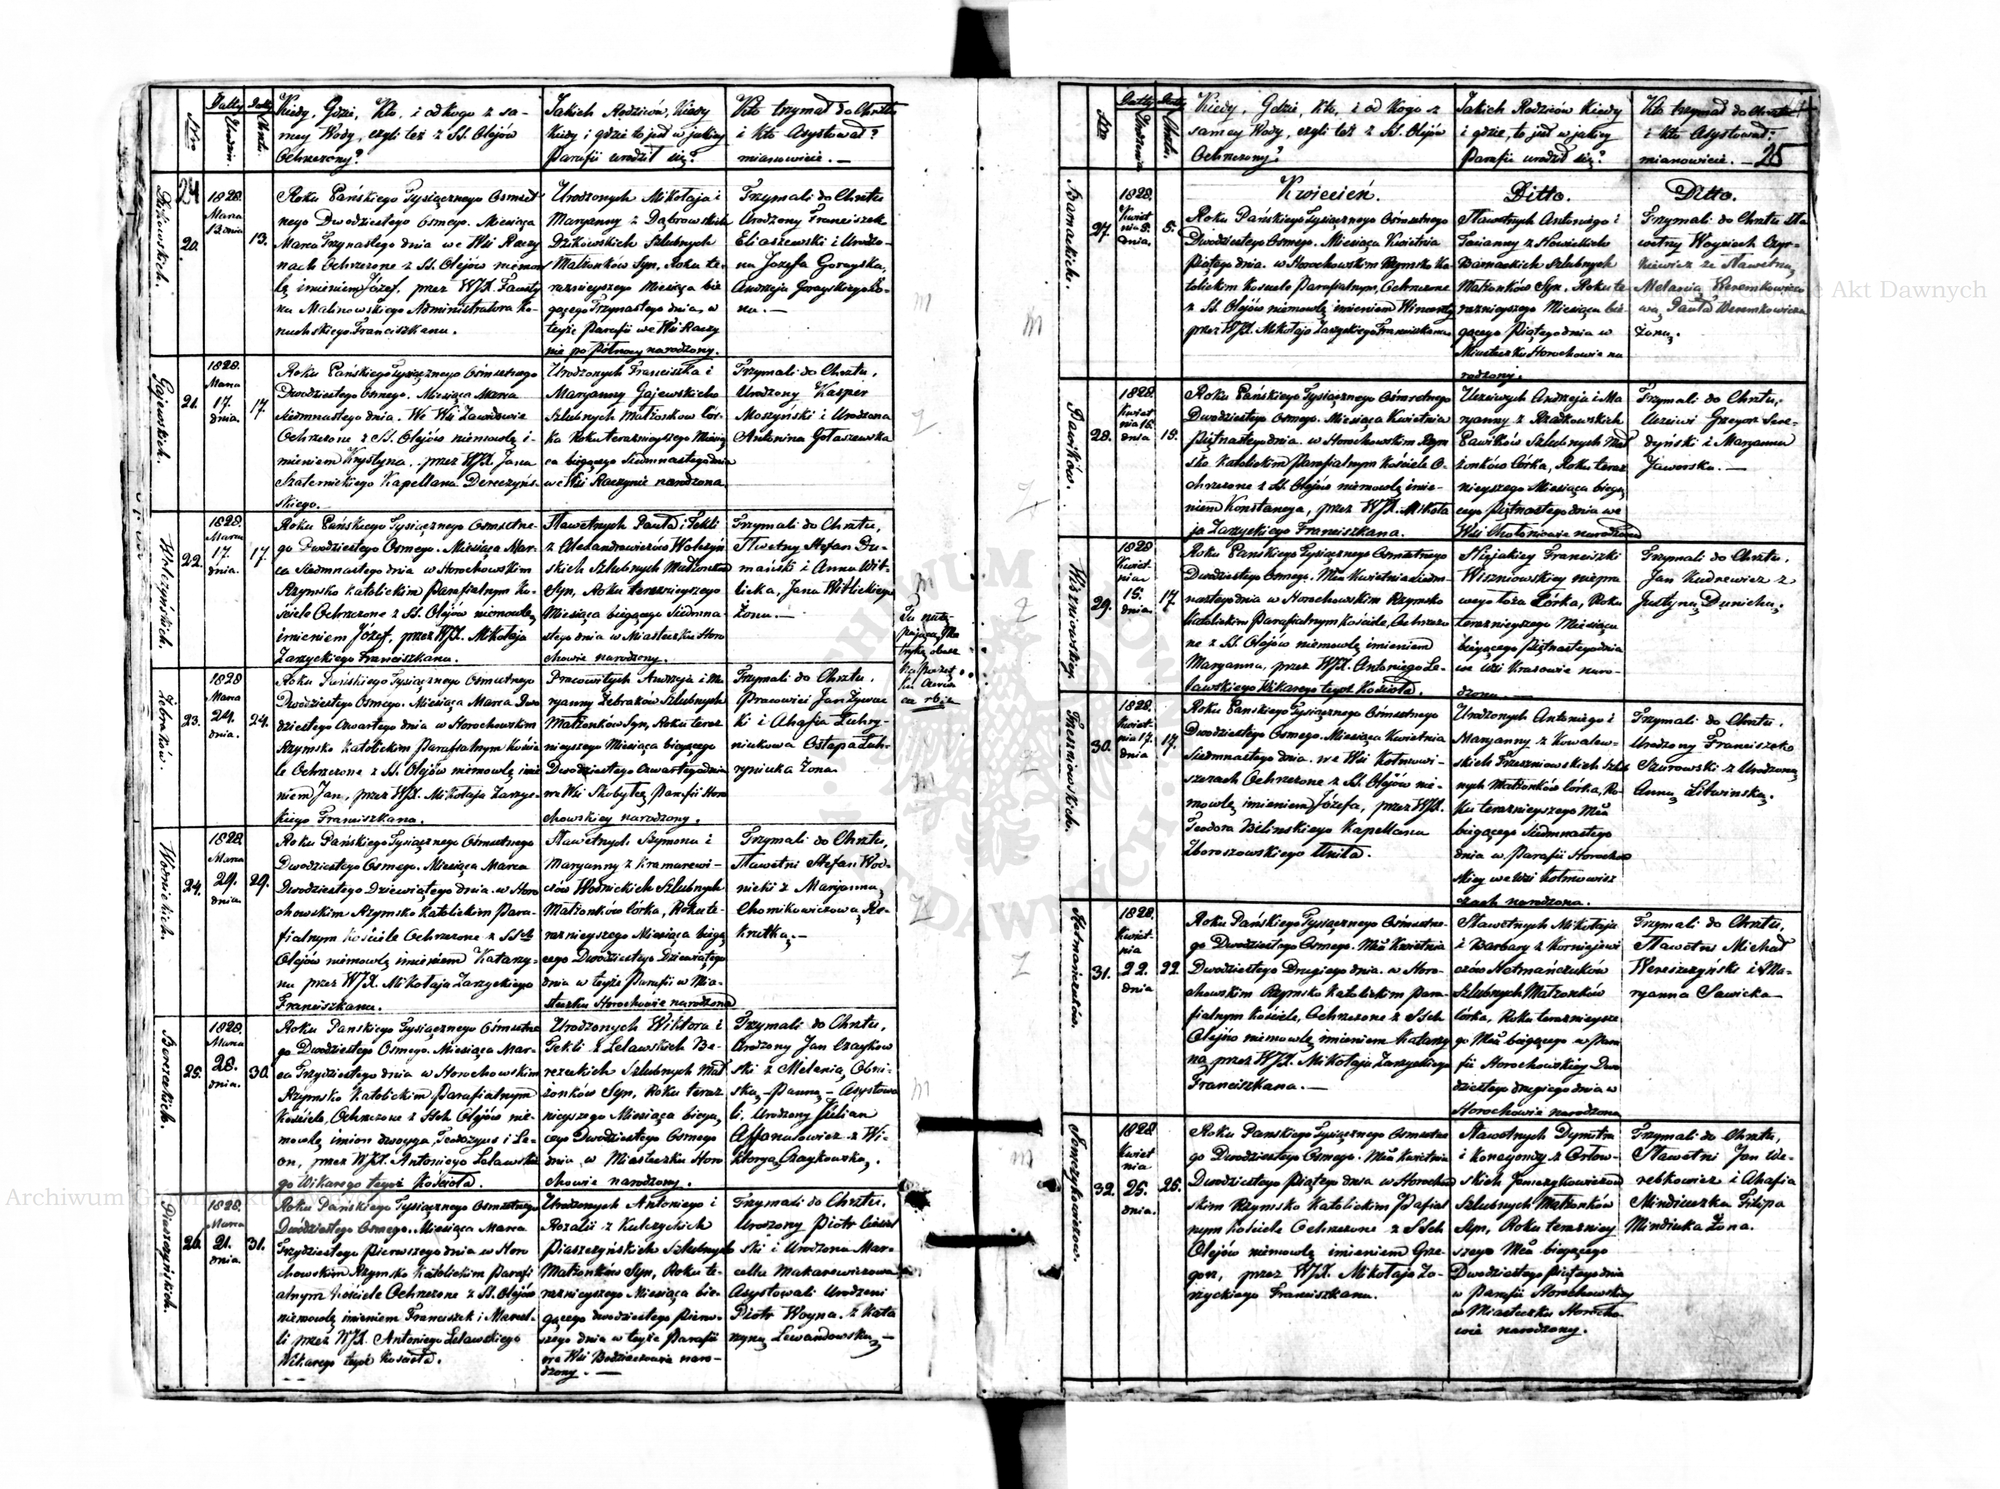 Nro
Datty
Urodzin.
Datty
Chrztu.
Kiedy, Gdzie, Kto, i od kogo z sa-
mey Wody, czyli też z SS. Olejów
Ochrzczony?
Jakich Rodziców, Kiedy
i gdzie to jest w jakiey
Parafii urodził się?
Kto trzymał do Chrztu
i Kto Asystował?
mianowicie. —
24
20.
1828.
Marca
13.
Roku Pańskiego Tysiącznego Osmset
nego Dwudziestego Osmego. Miesiąca
Marca Trzynastego dnia we Wsi Raczy
nach Ochrzczone z SS. Olejów niemow
lę imieniem Józef, przez WJX. Fausty
na Malinowskiego Administratora Ko-
Franciszkana.
Urodzonych Mikołaja i
Maryanny z Dąbrowskich
Dzikowskich Szlubnych
Małżonków Syn, Roku te-
raznieyszego Miesiąca bie
gącego Trzynastego dnia w
teyże Parafii we Wsi Raczy
nie po Północy narodzony.
Trzymali do Chrztu
Urodzony Franciszek
Eliaszewski i Urodzo-
na Józefa Gorayska,
Andrzeja Gorayskiego Żo-
na. —
Gajewskich.
21.
1828.
Marca
17.
dnia.
17.
Roku Pańskiego Tysiącznego Osmsetnego
Dwudziestego Osmego. Miesiąca Marca
Siedmnastego dnia. We Wsi Zawidowie
Ochrzczone z SS. Olejów niemowlę i-
mieniem Krystyna, przez WJX. Jana
Szaternickiego Kapellana Dereczyńs-
skiego.
Urodzonych Franciszka i
Maryanny Gajewskich
Szlubnych Małżonków Cór-
ka Roku teraznieyszego Miesią
ca biegącego Siedmnastego dnia
we Wsi Raczynie narodzona.
Trzymali do Chrztu,
Urodzony Kasper
Moszyński i Urodzona
Antonina Gołaszewska
22.
1828.
Marca
17.
dnia.
17.
Roku Pańskiego Tysiącznego Osmsetne-
go Dwudziestego Osmego. Miesiąca Mar-
ca Siedmnastego dnia w Horochowskim
Rzymsko Katolickim Parafialnym Ko-
ściele Ochrzczone z SS. Olejów niemowlę,
imieniem Józef, przez WJX. Mikołaja
Zarzyckiego Franciszkana.
Sławetnych Pawła i Tekli
z Alexandrowiczów Wołczyń
skich Szlubnych Małżonków
Syn, Roku teraznieyszego
Miesiąca biegącego Siedmna-
stego dnia w Miasteczku Horo
chowie narodzony.
Trzymali do Chrztu,
Sławetny Stefan Du-
mański i Anna Wit-
licka, Jana Witlickiego
Żona. —
Żebraków.
23.
1828
Marca
24.
dnia.
24.
Roku Pańskiego Tysiącznego Osmsetnego
Dwudziestego Osmego. Miesiąca Marca Dwu
dziestego Czwartego dnia w Horochowskim
Rzymsko Katolickim Parafialnym Kości
le Ochrzczone z SS. Olejów niemowlę imie
niem Jan, przez WJX. Mikołaja Zarzyc-
kiego Franciszkana.
Pracowitych Andrzeja i Ma
ryanny Żebraków Szlubnych
Małżonków Syn, Roku teraz
nieyszego Miesiąca biegącego
Dwudziestego Czwartego dnia
we Wsi Skobyłce Parafii Horo
chowskiey narodzony.
Trzymali do Chrztu,
Pracowici Jan Żywic
ki i Ahafia Łuhry-
niukowa Ostapa Łuh-
ryniuka Żona.
Wodnickich.
24.
1828.
Marca
29.
dnia.
29.
Roku Pańskiego Tysiącznego Osmsetnego
Dwudziestego Osmego. Miesiąca Marca
Dwudziestego Dziewiątego dnia. w Horo
chowskim Rzymsko Katolickim Para-
fialnym Kościele Ochrzczone z SSch
Olejów niemowlę imieniem Katarzy-
na przez WJX. Mikołaja Zarzyckiego
Franciszkana.
Sławetnych Szymona i
Maryanny z Kramarewi-
czów Wodnickich Szlubnych
Małżonków Córka, Roku te-
raznieyszego Miesiąca biegą
cego Dwudziestego Dziewiątego
dnia w teyże Parafii w Mia-
steczku Horochowie narodzona
Trzymali do Chrztu,
Sławetni Stefan Wod-
nicki z Maryanną
Chomikowiczową,
Bereżeckich.
25.
1828.
Marca
28.
dnia.
30.
Roku Pańskiego Tysiącznego Osmsetne
go Dwudziestego Osmego. Miesiąca Mar-
ca Trzydziestego dnia w Horochowskim
Rzymsko Katolickim Parafialnym
Kościele, Ochrzczone z SSch Olejów nie-
mowlę, imion dwoyga, Teodozyus i Le-
on, przez WJX. Antoniego Lelawskie
go Wikarego tegoż Kościoła.
Urodzonych Wiktora i
Tekli z Lelawskich Be-
rezeckich Szlubnych Mał
żonków Syn, Roku teraz
nieyszego Miesiąca biegą,
cego Dwudziestego Osmego
dnia w Miasteczku Horo
chowie narodzony.
Trzymali do Chrztu,
Urodzony Jan Czaykow
ski z Melanią
Panną, — Asystowa
li, Urodzony Julian
Affanasowicz z Wi-
ktoryą Czaykowską.
Piaszczyńskich.
26.
1828.
Marca
21.
dnia.
31.
Roku Pańskiego Tysiącznego Osmsetnego
Dwudziestego Osmego. Miesiąca Marca
Trzydziestego Pierwszego dnia w Horo
chowskim Rzymsko Katolickim Parafi
alnym Kościele Ochrzczone z SS. Olejów
niemowlę, imieniem Franciszek i Marcel-
li przez WJX. Antoniego Lelawskiego
Wikarego tegoż Kościoła.
Urodzonych Antoniego i
Rozalii z Kulczyckich
Piaszczyńskich Szlubnych
Małżonków Syn, Roku te-
raznieyszego Miesiąca bie-
gącego dwudziestego Pierw-
szego dnia w teyże Parafii
we Wsi naro-
dzony. —
Trzymali do Chrztu,
Urodzony Piotr
ski i Urodzona Mar-
cella Makarewiczowa
Asystowali Urodzeni
Piotr Woyna z Kata
rzyną Lewandowską, —
Nro
Datty
Urodzenia
Datty
Chrztu.
Kiedy, Gdzie, Kto, i od Kogo z
samey Wody, czyli też z SS. Olejów
Ochrzczony?
Jakich Rodziców Kiedy
i gdzie, to jest w jakiey
Parafii urodził się?
Kto trzymał do Chrztu
i Kto Asystował?
mianowicie. —
25
Kwiecień.
Ditto.
Ditto.
Barnackich.
27.
1828.
Kwiet
nia 5.
dnia.
5.
Roku Pańskiego Tysiącznego Osmsetnego
Dwudziestego Osmego. Miesiąca Kwietnia
Piątego dnia. w Horochowskim Rzymsko Ka-
tolickim Kościele Parafialnym, Ochrzczone
z SS. Olejów niemowlę imieniem Wincenty
przez WJX. Mikołaja Zarzyckiego Franciszkana
Sławetnych Antoniego i
Tacianny z Nowickich
Barnackich Szlubnych
Małżonków Syn, Roku te
raznieyszego Miesiąca bie-
gącego Piątego dnia w
Miasteczku Horochowie na
rodzony.
Trzymali do Chrztu Sła
wetny Woyciech Czyr-
kiewicz ze Sławetną
Melanią Weremkowiczo
wą, Pawła Weremkowicza
Żoną.
Pawików.
28.
1828.
Kwiet
nia 15.
dnia
15.
Roku Pańskiego Tysiącznego Osmsetnego
Dwudziestego Osmego. Miesiąca Kwietnia
Piętnastego dnia. w Horochowskim Rzym
sko Katolickim Parafialnym Kościele O-
chrzczone z SS. Olejów niemowlę imie-
niem Konstancya, przez WJX. Mikoła
ja Zarzyckiego Franciszkana.
Uczciwych Andrzeja i Ma
ryanny z Rzadkowskich
Pawików Szlubnych Mał
żonków Córka, Roku teraz
nieyszego Miesiąca biegą
cego Piętnastego dnia we
Wsi narodzona
Trzymali do Chrztu,
Uczciwi Grzegorz Sere-
dyński i Maryanna
Jaworska. —
Wiszniowskiey
29.
1828
Kwiet
nia
15.
dnia.
17.
Roku Pańskiego Tysiącznego Osmsetnego
Dwudziestego Osmego. Mca Kwietnia siedm-
nastego dnia w Horochowskim Rzymsko
Katolickim Parafialnym Kościele, Ochrzczo
ne z SS. Olejów niemowlę imieniem
Maryanna, przez WJX. Antoniego Le-
lawskiego Wikarego tegoż Kościoła.
Niejakiey Franciszki
Wiszniowskiey niepra
wego łoża Córka, Roku
teraznieyszego Miesiąca
biegącego Piętnastego dnia
we Wsi Krasowie naro-
dzona. —
Trzymali do Chrztu,
Jan Kudrewicz z
Justyną Dunicką.
Treszniowskich.
30.
1828.
Kwiet-
nia 17.
dnia
17.
Roku Pańskiego Tysiącznego Osmsetnego
Dwudziestego Osmego. Miesiąca Kwietnia
Siedmnastego dnia. we Wsi Kołmowi-
szczach Ochrzczone z SS. Olejów nie-
mowlę, imieniem Józefa, przez WJX.
Teodora Bilinskiego Kapellana
Zboroszowskiego Unita.
Urodzonych Antoniego i
Maryanny z Kowalew-
skich Treszniowskich Szlub
nych Małżonków Córka, Ro-
ku teraznieyszego Mca
biegącego Siedmnastego
dnia w Parafii Horochow
skiey we Wsi Kołmowisz
czach narodzona.
Trzymali do Chrztu,
Urodzony Franciszek
Szurowski z Urodzoną
Anną Litwinską.
Hetmańczuków.
31.
1828.
Kwiet-
nia
22.
dnia
22.
Roku Pańskiego Tysiącznego Osmsetne-
go Dwudziestego Osmego. Mca Kwietnia
Dwudziestego Drugiego dnia. w Horo-
chowskim Rzymsko Katolickim Para-
fialnym Kościele, Ochrzczone z SSch
Olejów niemowlę imieniem Katarzy
na przez WJX. Mikołaja Zarzyckiego
Franciszkana. —
Sławetnych Mikołaja
i Barbary z Korniejewi
czów Hetmańczuków
Szlubnych Małżonków
Córka, Roku teraznieysze
go Mca biegącego w Para
fii Horochowskiey Dwu
dziestego drugiego dnia w
Horochowie narodzona
Trzymali do Chrztu,
Sławetni Michał
Wereszczyński i Ma-
ryanna Sawicka
Tomczykowiczow.
32.
1828
Kwiet
nia
25.
dnia.
25.
Roku Pańskiego Tysiącznego Osmsetne
go Dwudziestego Osmego. Mca Kwietnia
Dwudziestego Piątego dnia w Horochow
skim Rzymsko Katolickim Pafial
nym Kościele Ochrzczone z SSch
Olejów niemowlę imieniem Grze-
gorz, przez WJX. Mikołaja Za-
rzyckiego Franciszkana.
Sławetnych Dymitra
i Koncyowy z Orłow-
skich Tomczykowiczow
Szlubnych Małżonków
Syn, Roku terazniey
szego Mca biegącego
Dwudziestego piątego dnia
w Parafii Horochowskiey
w Miasteczku Horocho
wie narodzony.
Trzymali do Chrztu,
Sławetni Jan We-
rebkowicz i Ahafia
Mindiuczka Filipa
Mindiuka Żona.
Archiwum Główne Akt Dawnych
Archiwum Główne Akt Dawnych